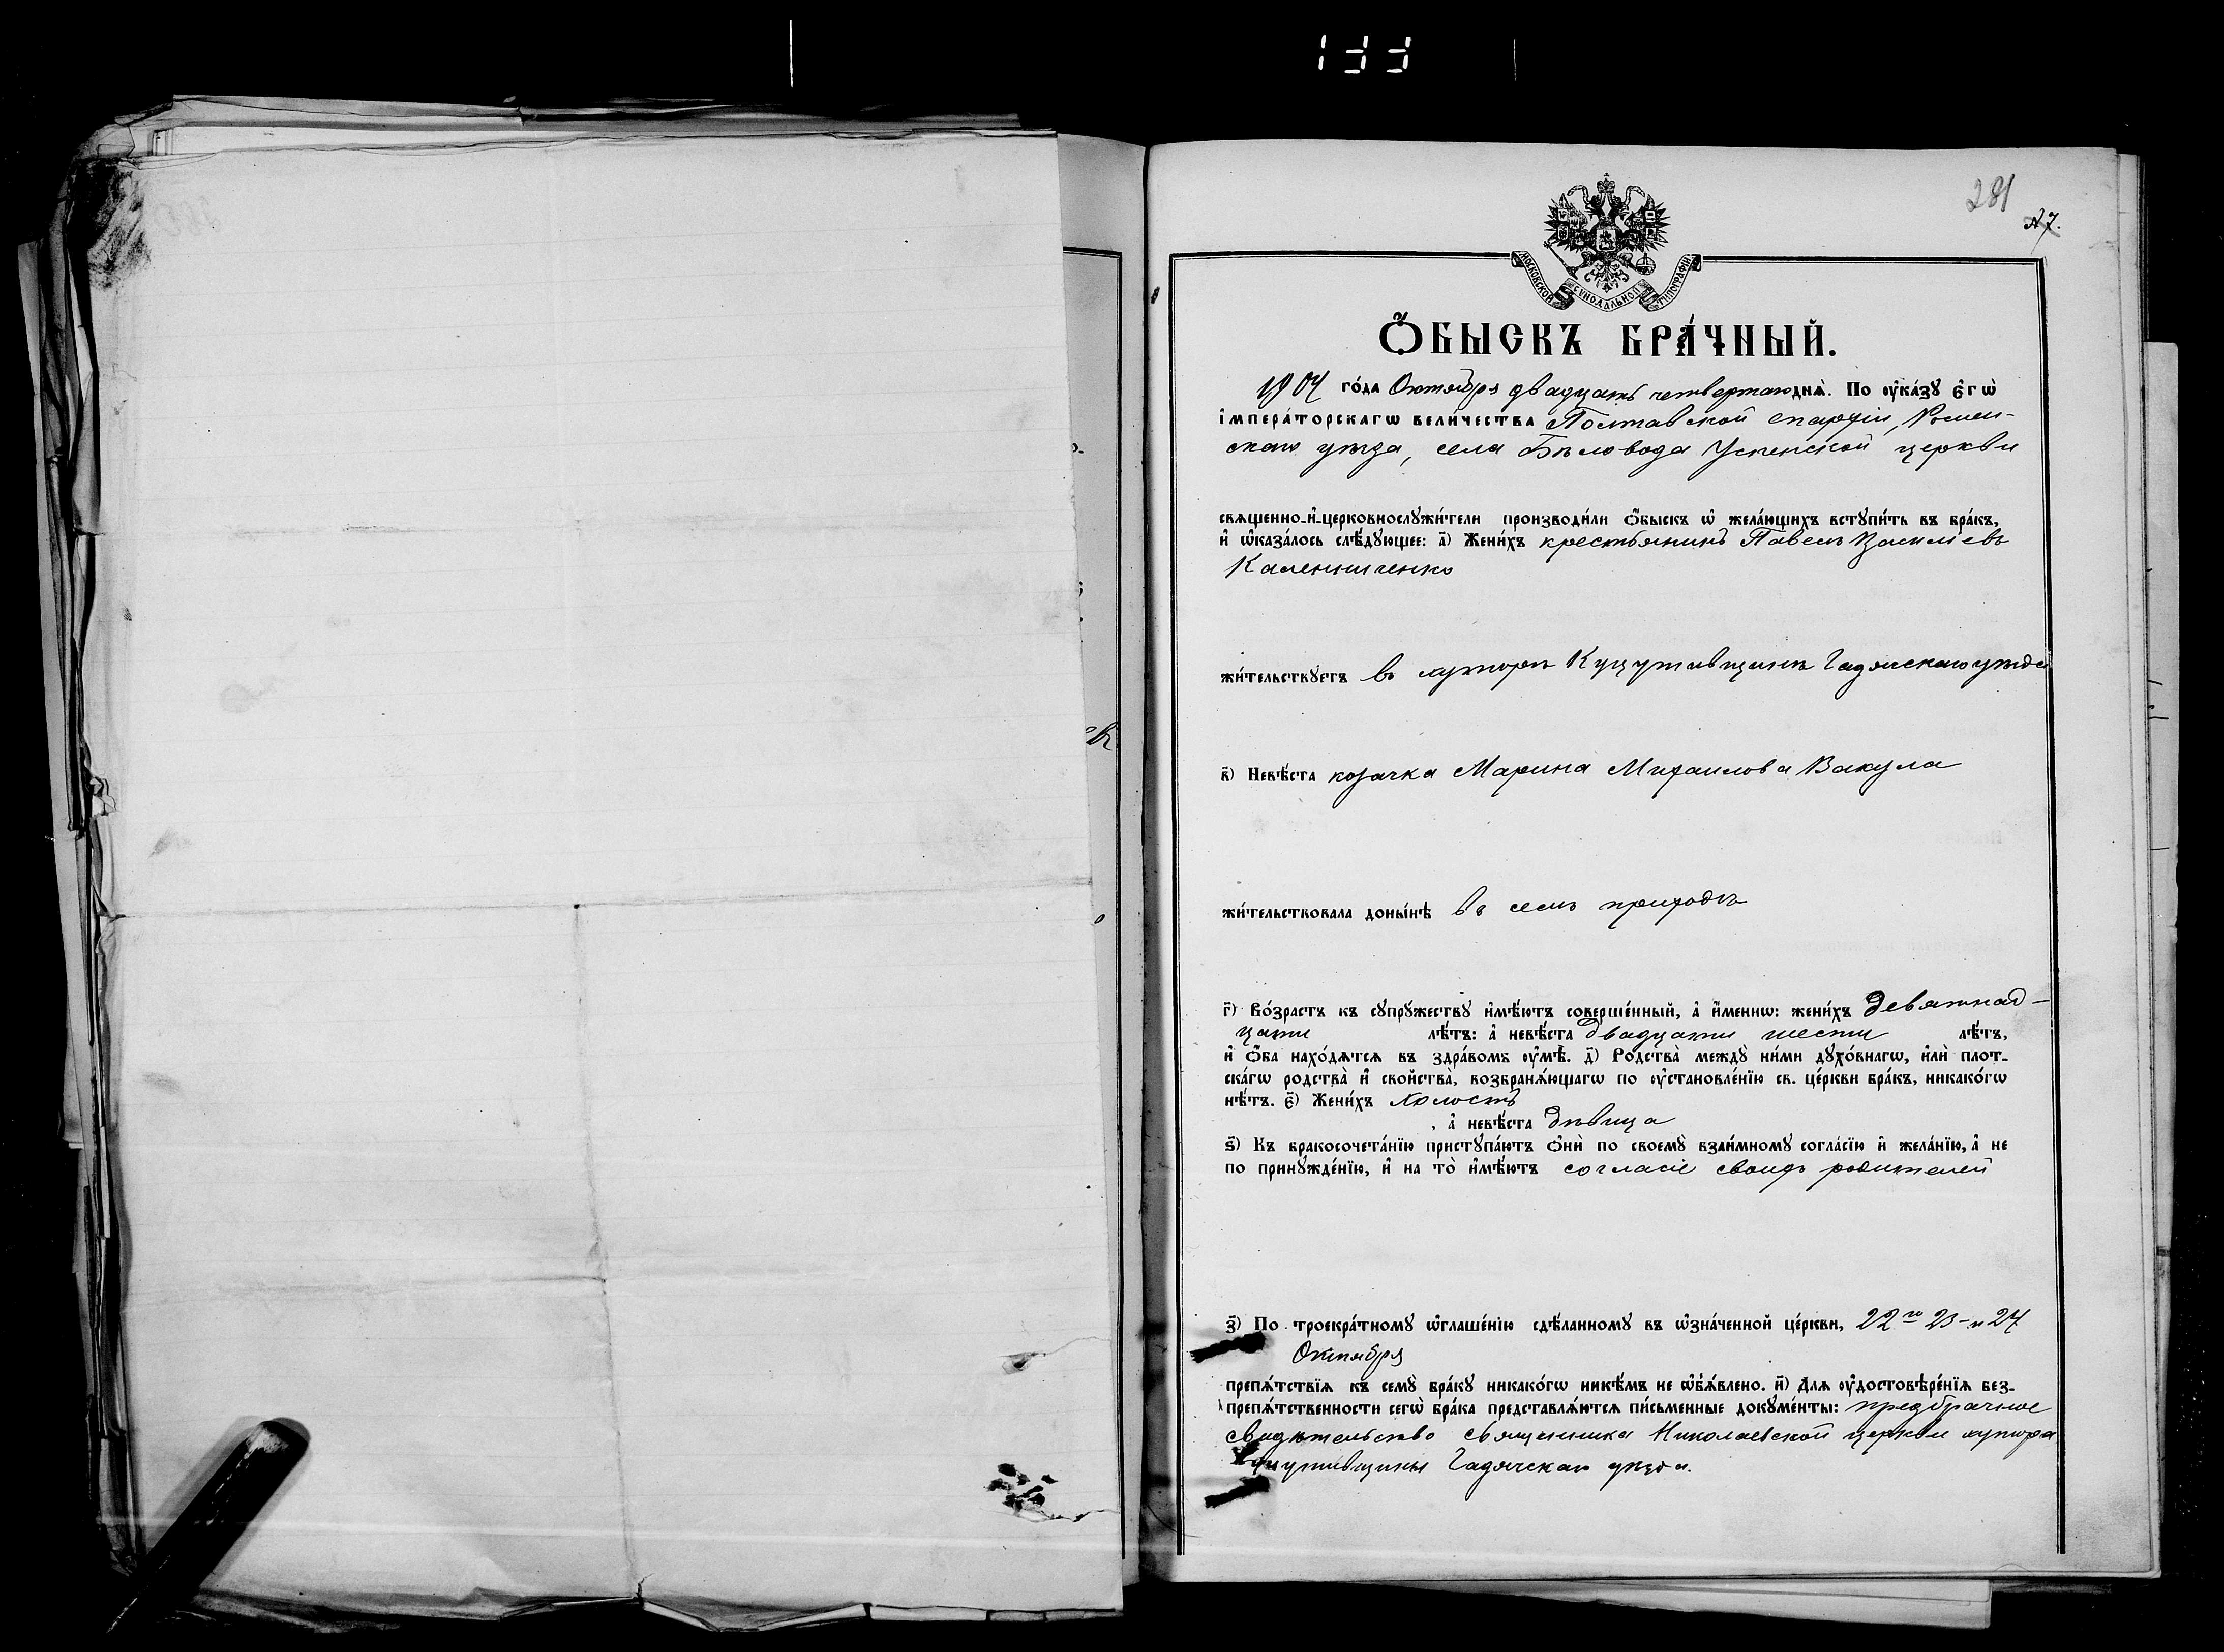 133
281
№ 7.
МОСКОВСКОЙ СѴНОДАЛЬНОЙ ТИПОГРАФІИ
Ѻ҆БЫСКЪ БРА́ЧНЫЙ.
1904 го́да Октября двадцать четвертаго днѧ̀. По ᲂу҆ка́зꙋ є҆гѡ̀
і҆мпера́торскагѡ вели́чества Полтавской епархіи, Ромен-
скаго уѣзда, села Бѣловода Успенской церкви
свѧщенно-и҆-церковнослꙋжи́тели производи́ли ѻ҆быскъ ѡ҆ жела́ющихъ встꙋпи́ть въ бра́къ,
и҆ ѡ҆каза́лось слѣ́дꙋющее: а҃) Жени́хъ крестьянинъ Павелъ Василіевъ
Калениченко
жи́тельствꙋетъ въ хуторѣ Куцутивщинѣ Гадячскаго уѣзда
в҃) Невѣ́ста козачка Марина Михаилова Вакула
жи́тельствовала доны́нѣ въ семъ приходѣ
г҃) Во́зрастъ къ сꙋпрꙋ́жествꙋ и҆мѣ́ютъ соверше́нный, а҆ и҆́меннѡ: жени́хъ девятнад-
цати лѣ́тъ: а҆ невѣ́ста двадцати шести лѣ́тъ,
и҆ ѻ҆́ба нахо́дѧтсѧ въ здра́вомъ ᲂу҆мѣ̀. д҃) Родства̀ междꙋ̀ ни́ми дꙋхо́внагѡ, и҆лѝ плот-
ска́гѡ родства̀ и҆ свойства̀, возбранѧ́ющагѡ по ᲂу҆становле́нїю св. це́ркви бра́къ, никако́гѡ
нѣ́тъ. є҃) Жени́хъ холостъ
, а҆ невѣ́ста дѣвица
ѕ҃) Къ бракосочета́нїю пристꙋпа́ютъ ѻ҆нѝ по своемꙋ̀ взаи́мномꙋ согла́сїю и҆ жела́нїю, а҆ не
по принꙋжде́нїю, и҆ на то̀ и҆мѣ́ютъ согласіе своихъ родителей
з҃) По троекра́тномꙋ ѡ҆глаше́нїю сдѣ́ланномꙋ въ ѡ҆зна́ченной це́ркви, 22го 23-и 24
Октября
препѧ́тствїѧ къ семꙋ̀ бра́кꙋ никако́гѡ никѣ́мъ не ѡ҆б̾ѧ́влено. и҃) Длѧ ᲂу҆достовѣре́нїѧ без-
препѧ́тственности сегѡ̀ бра́ка представлѧ́ютсѧ пи́сьменные докꙋме́нты: предбрачное
свидѣтельство священника Николаевской церкви хутора
Куцутивщины Гадячскаго уѣзда.